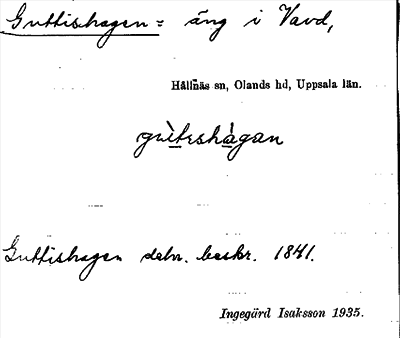 Guttishagen = äng i Vavd,
Hållnäs sn, Olands hd, Uppsala län.
gùiteshàgan
Guttishagen deln. beskr. 1841.
Ingegärd Isaksson 1935.